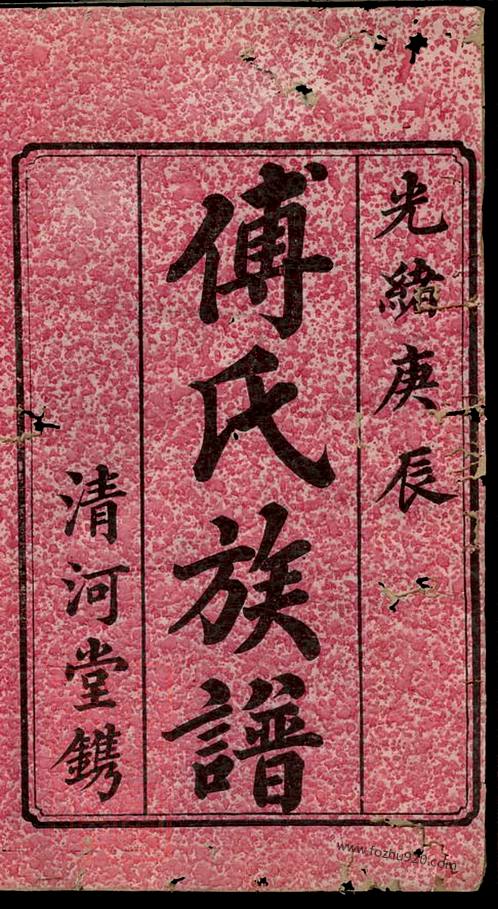 光緒庚辰
傅氏族譜
清河堂鐫
www.fozhu920.com